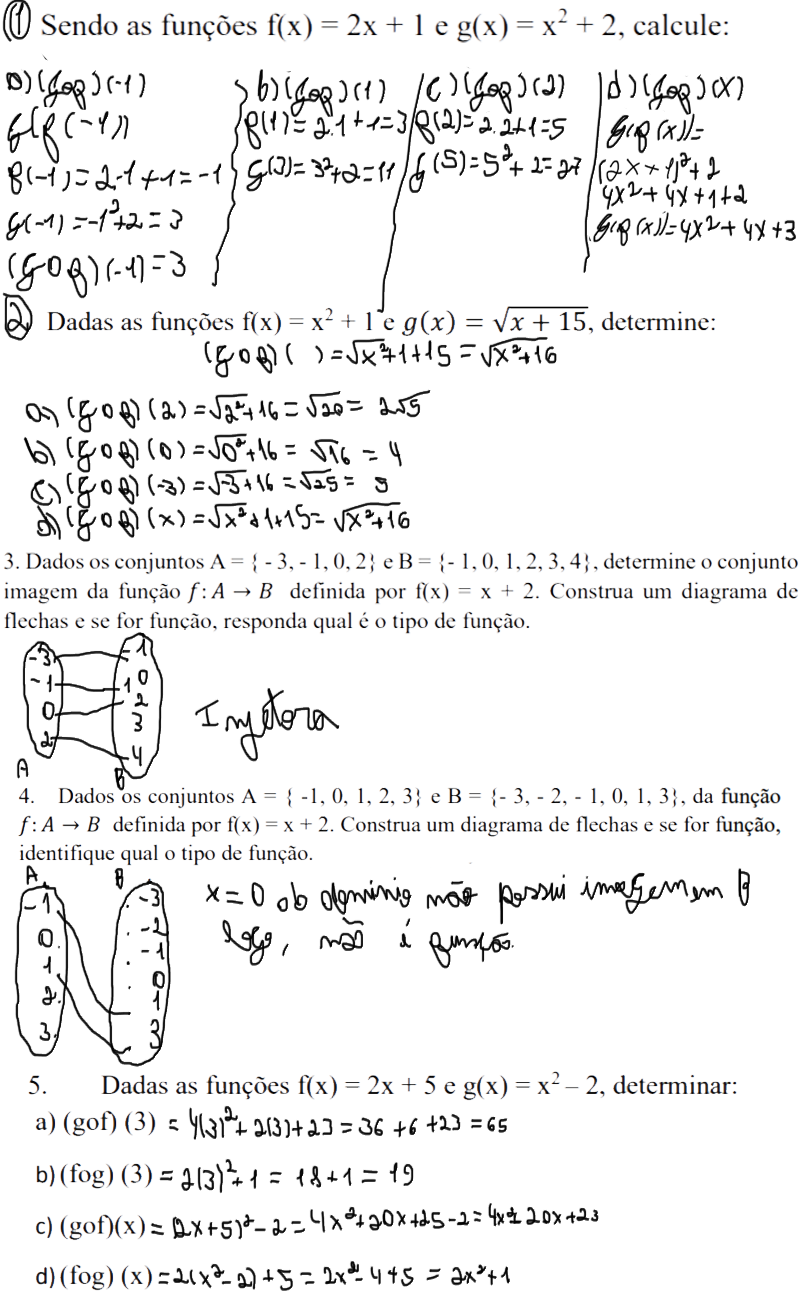 ① Sendo as funções f(x) = 2x + 1 e g(x) = x² + 2, calcule:
a) (gof) (-1)
g(f(-1))
f(-1) = 2.-1 + 1 = -1
g(-1) = -1² + 2 = 3
(gof) (-1) = 3
b) (gof) (1)
f(1) = 2.1 + 1 = 3
g(3) = 3² + 2 = 11
c) (gof) (2)
f(2) = 2.2 + 1 = 5
g(5) = 5² + 2 = 27
d) (gof) (x)
g(f(x)) =
(2x + 1)² + 2
4x² + 4x + 1 + 2
g(f(x)) = 4x² + 4x + 3
② Dadas as funções f(x) = x² + 1 e g(x) = √(x + 15), determine:
(gof) ( ) = √x²+1+15 = √x²+16
a) (gof) (2) = √2²+16 = √20 = 2√5
b) (gof) (0) = √0²+16 = √16 = 4
c) (gof) (-3) = √-3+16 = √25 = 5
d) (gof) (x) = √x²+1+15 = √x²+16
3. Dados os conjuntos A = { - 3, - 1, 0, 2} e B = {- 1, 0, 1, 2, 3, 4}, determine o conjunto
imagem da função f: A → B definida por f(x) = x + 2. Construa um diagrama de
flechas e se for função, responda qual é o tipo de função.
-3 -1
-1 1 0
0 2
3
2 4
A B
Injetora
4. Dados os conjuntos A = { -1, 0, 1, 2, 3} e B = {- 3, - 2, - 1, 0, 1, 3}, da função
f: A → B definida por f(x) = x + 2. Construa um diagrama de flechas e se for função,
identifique qual o tipo de função.
A B
-1 -3
0 -2
1 -1
2 0
1
3 3
x = 0 do domínio não possui imagem em B
logo, não é função.
5. Dadas as funções f(x) = 2x + 5 e g(x) = x² – 2, determinar:
a) (gof) (3) = 4(3)² + 2(3) + 23 = 36 + 6 + 23 = 65
b) (fog) (3) = 2(3)² + 1 = 18 + 1 = 19
c) (gof)(x) = (2x + 5)² - 2 = 4x² + 20x + 25 - 2 = 4x² + 20x + 23
d) (fog) (x) = 2(x² - 2) + 5 = 2x² - 4 + 5 = 2x² + 1